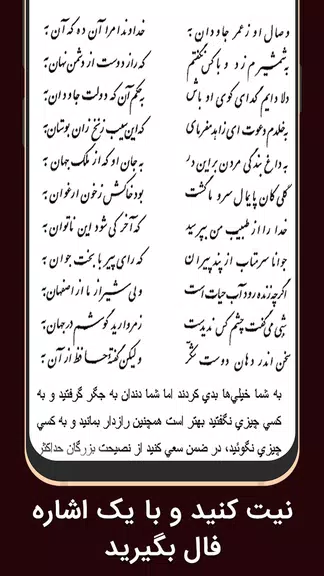 وصال او زعمر جاودان به خداوندا مرا آن ده که آن به
به شمشیرم زد و با کس نگفتم که راز دوست از دشمن نهان به
دلا دایم گدای کوی او باش به حکم آن که دولت جاودان به
به خلدم دعوت ای زاهد مفرمای که این سیب زنخ زان بوستان به
به داغ بندگی مردن براین در به جان او که از ملک جهان به
گلی کان پایمال سرو ما گشت بود خاکش زخون ارغوان به
خدا را از طبیب من بپرسید که آخر کی شود این ناتوان به
جوانا سرمتاب از پند پیران که رای پیر با بخت جوان به
اگرچه زنده رود آب حیات است ولی شیراز ما از اصفهان به
شبی می‌گفت چشم کس ندیدست زمروارید گوشم در جهان به
سخن اندر دهان دوست شکر ولیکن گفته حافظ از آن به
به شما خيلي‌ها بدي کردند اما شما دندان به جگر گرفتيد و به
کسي چيزي نگفتيد بهتر است همچنين رازدار بمانيد و به کسي
چيزي نگوئيد، در ضمن سعي کنيد از نصيحت بزرگان حداکثر
نیت کنید و با یک اشاره
فال بگیرید